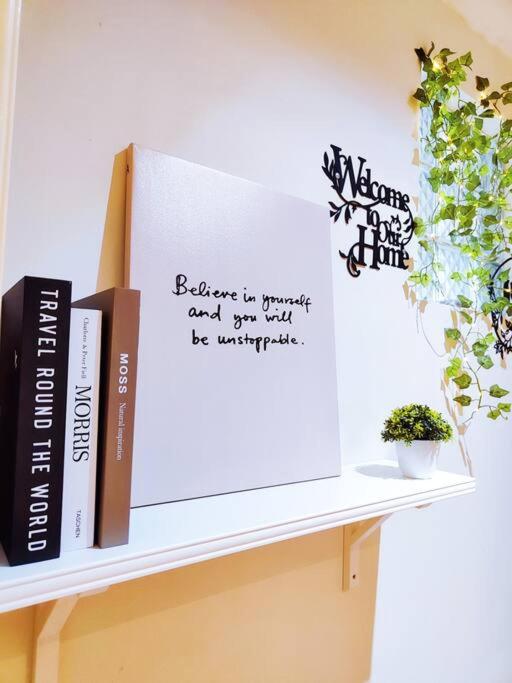 Welcome
To Our
Home
Believe in yourself
and you will
be unstoppable.
TRAVEL ROUND THE WORLD
Charlotte & Peter Fiell
MORRIS
TASCHEN
MOSS
Natural inspiration